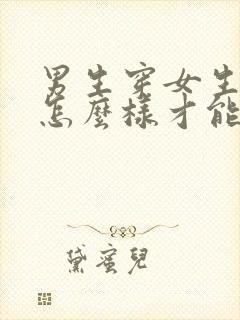 男生穿女生
怎麼樣才能
黛蜜兒